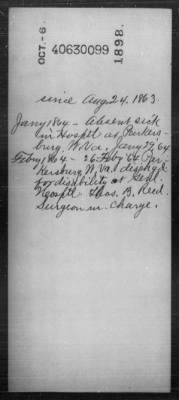 OCT.-6.
40630099
1898.
since Aug 24, 1863.
Jany 1864 - Absent sick
in Hosptl at Parkers-
burg, W. Va. Jany 29, 64
Feby 1864 - 26 Feby 64 Par-
kersburg W. Va. dischgd
for disability at Genl
Hosptl Thos. B. Reed
Surgeon in Charge.